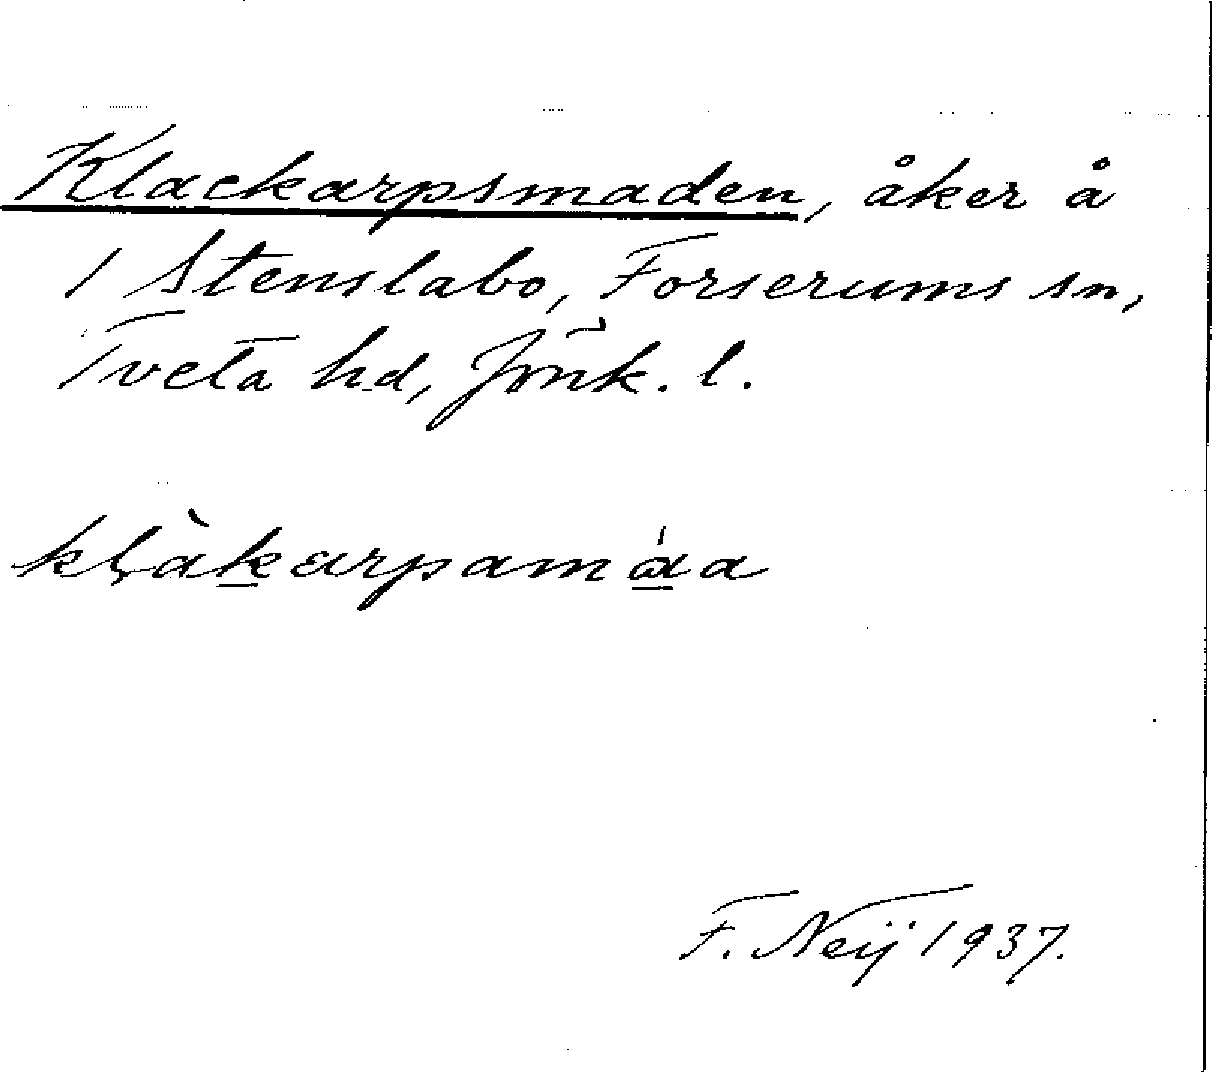 Klackarpsmaden, åker å
1 Stenslabo, Forserums sn,
Tveta hd, Jönk. l.
kḷàk̲arpamɑ̲́a
F. Neij 1937.